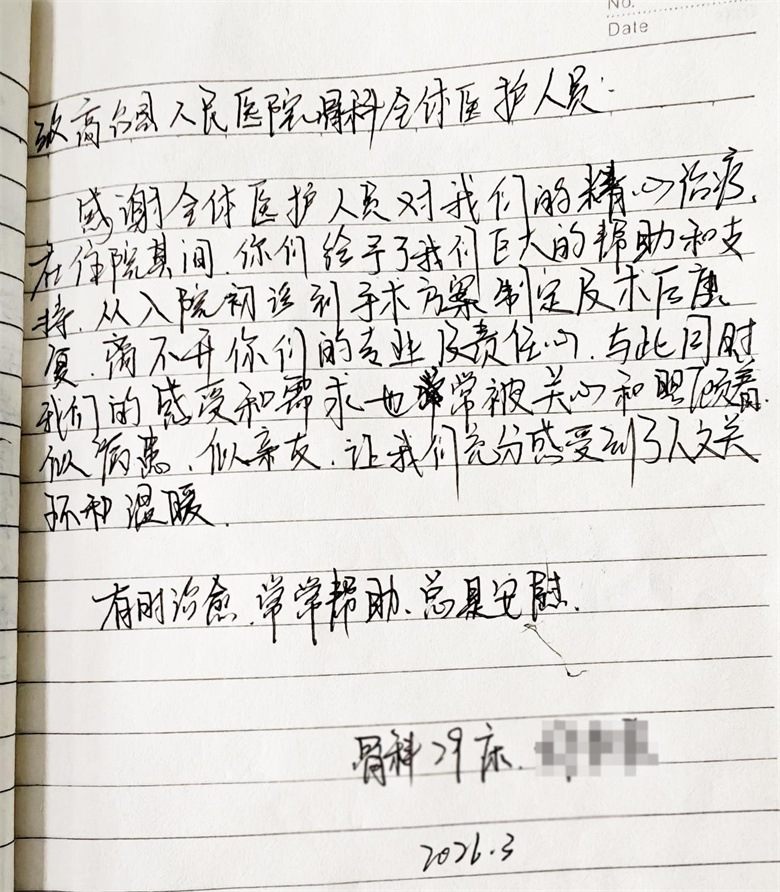 No.
Date
致高台县人民医院骨科全体医护人员:
感谢全体医护人员对我们的精心治疗,
在住院其间,你们给予了我们巨大的帮助和支
持,从入院初诊到手术方案制定及术后康
复,离不开你们的专业及责任心,与此同时
我们的感受和需求也常常被关心和照顾着.
似病患,似亲友,让我们充分感受到了人文关
怀和温暖.
有时治愈,常常帮助,总是安慰.
骨科29床.
2026.3